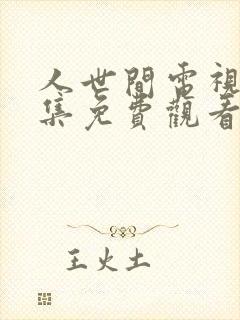 人世間電視
集免費觀看
王火土